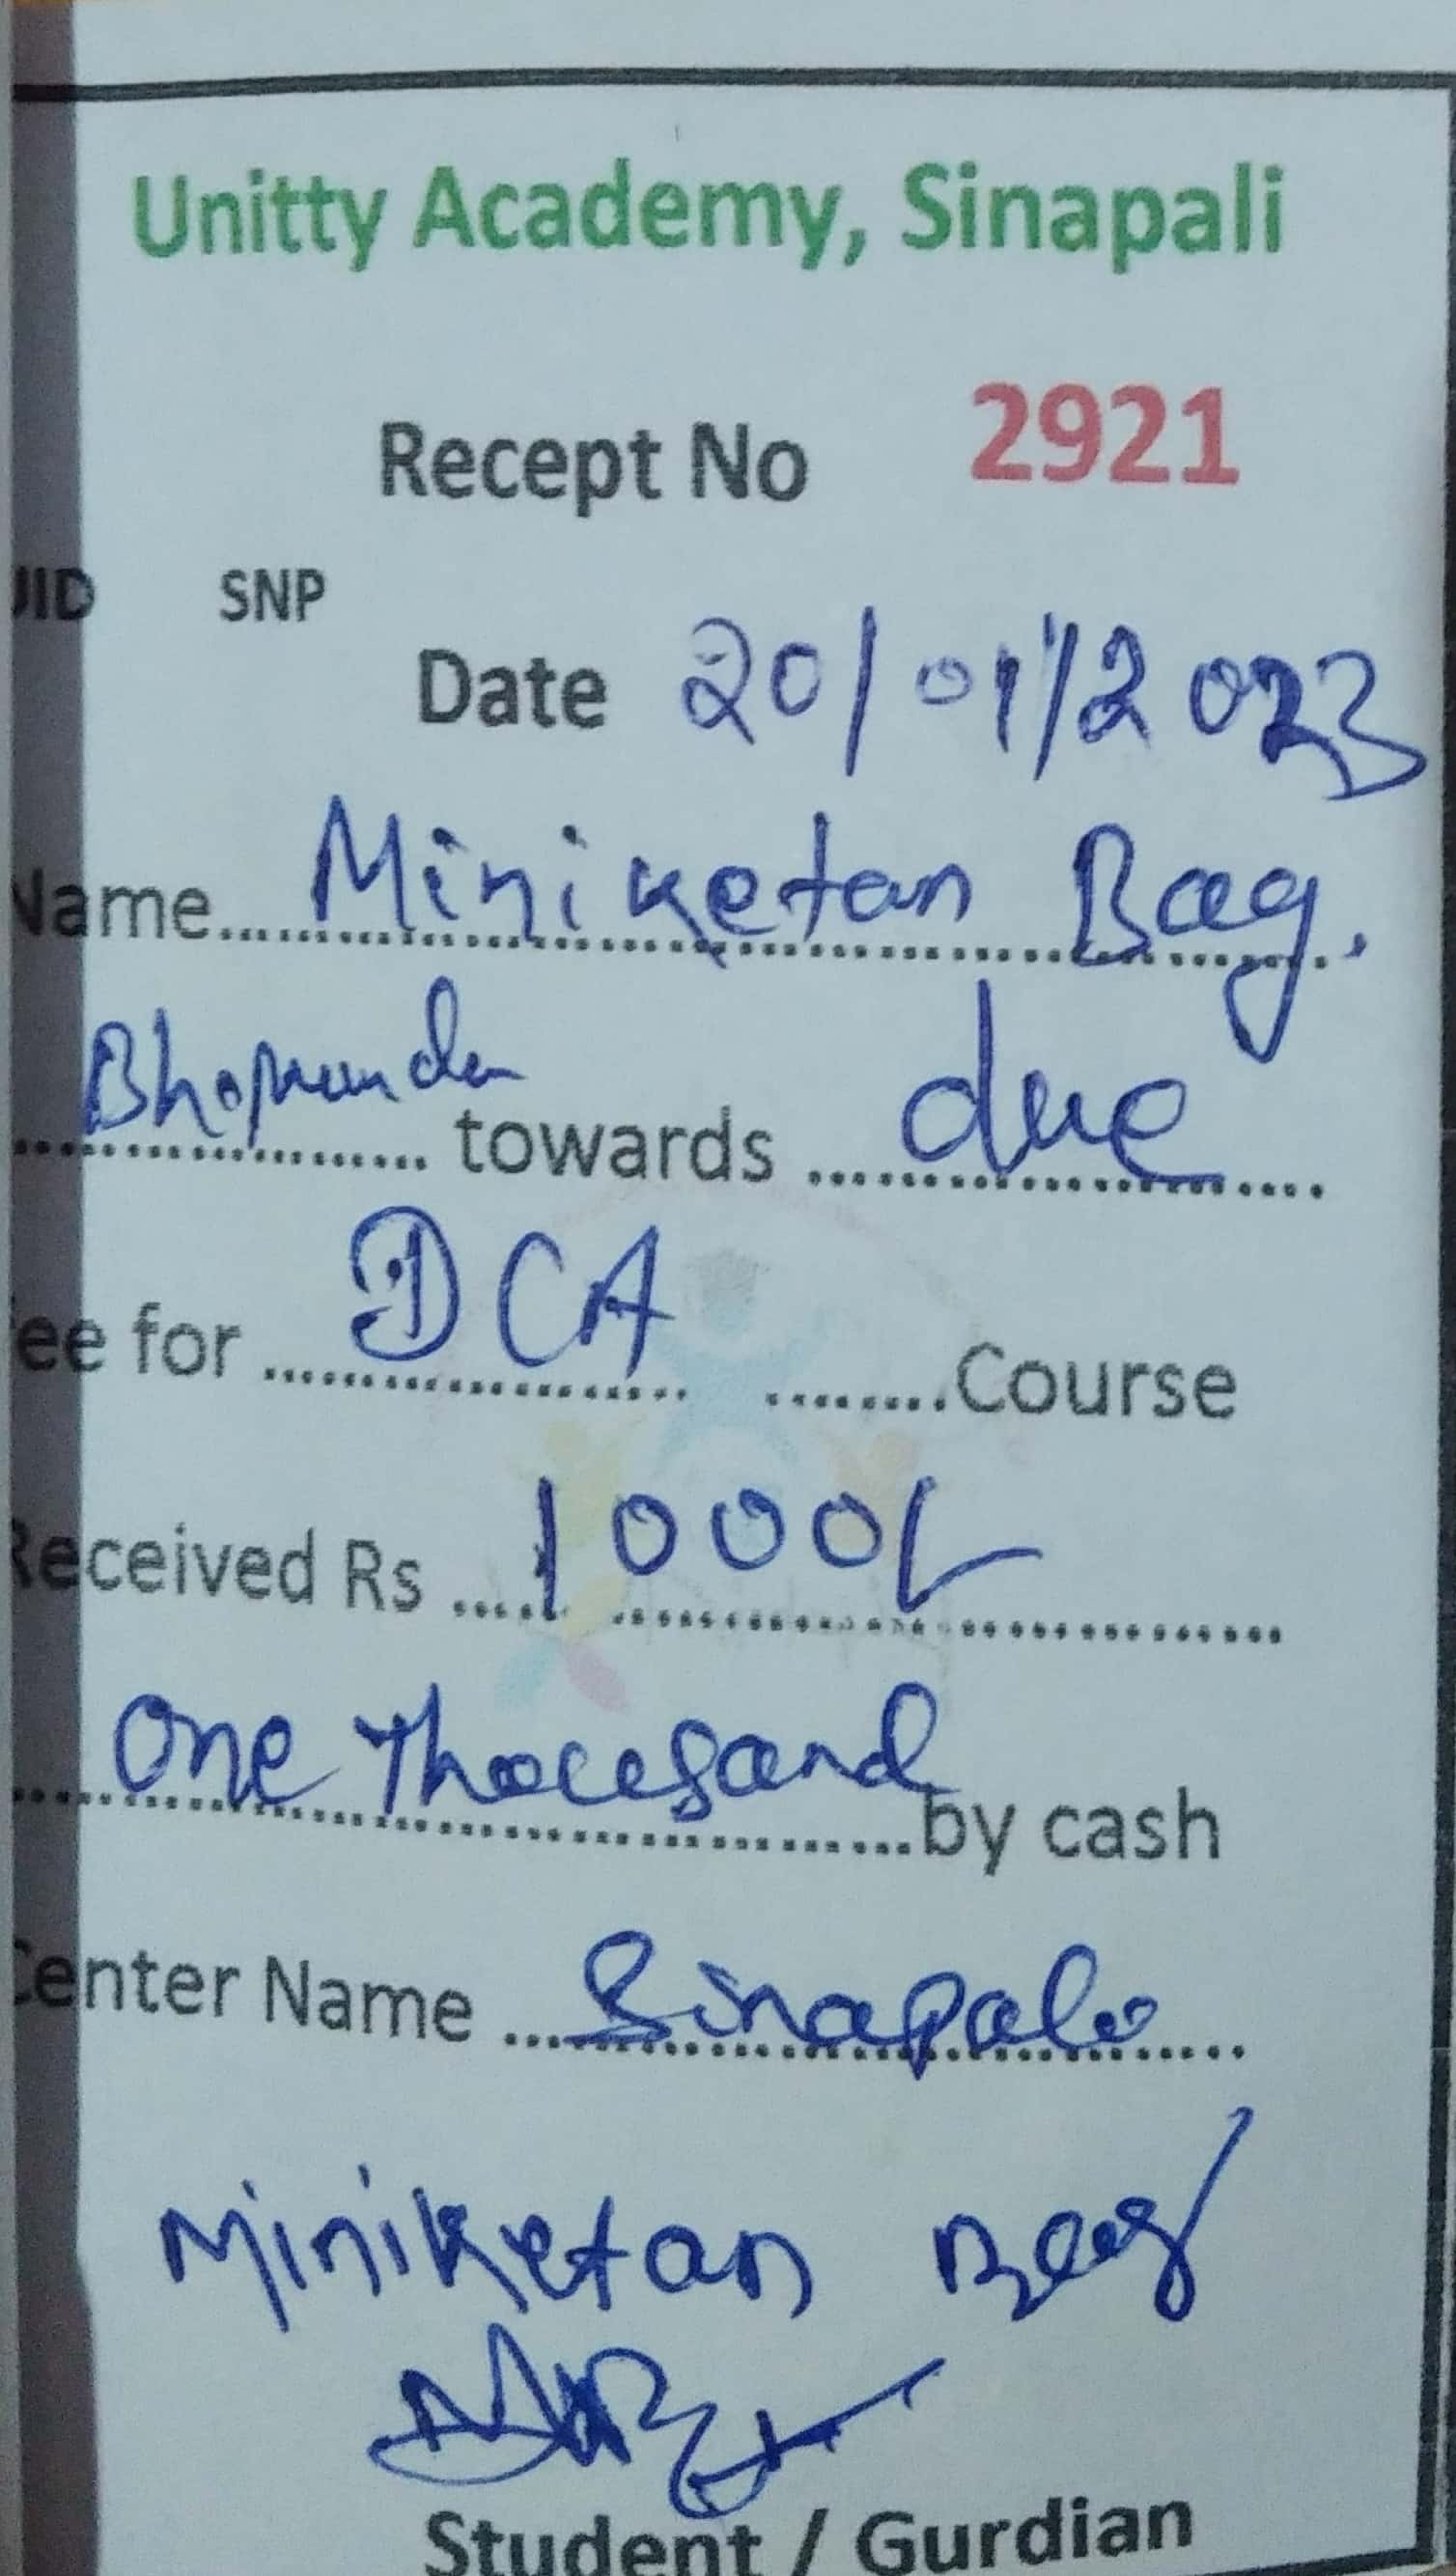 Unitty Academy, Sinapali
Recept No 2921
UID SNP
Date 20/01/2023
Name Miniketan Bag.
towards due
fee for DCA Course
Received Rs 1000/-
One Thousand by cash
Center Name Sinapali
Miniketan Bag
Student / Gurdian